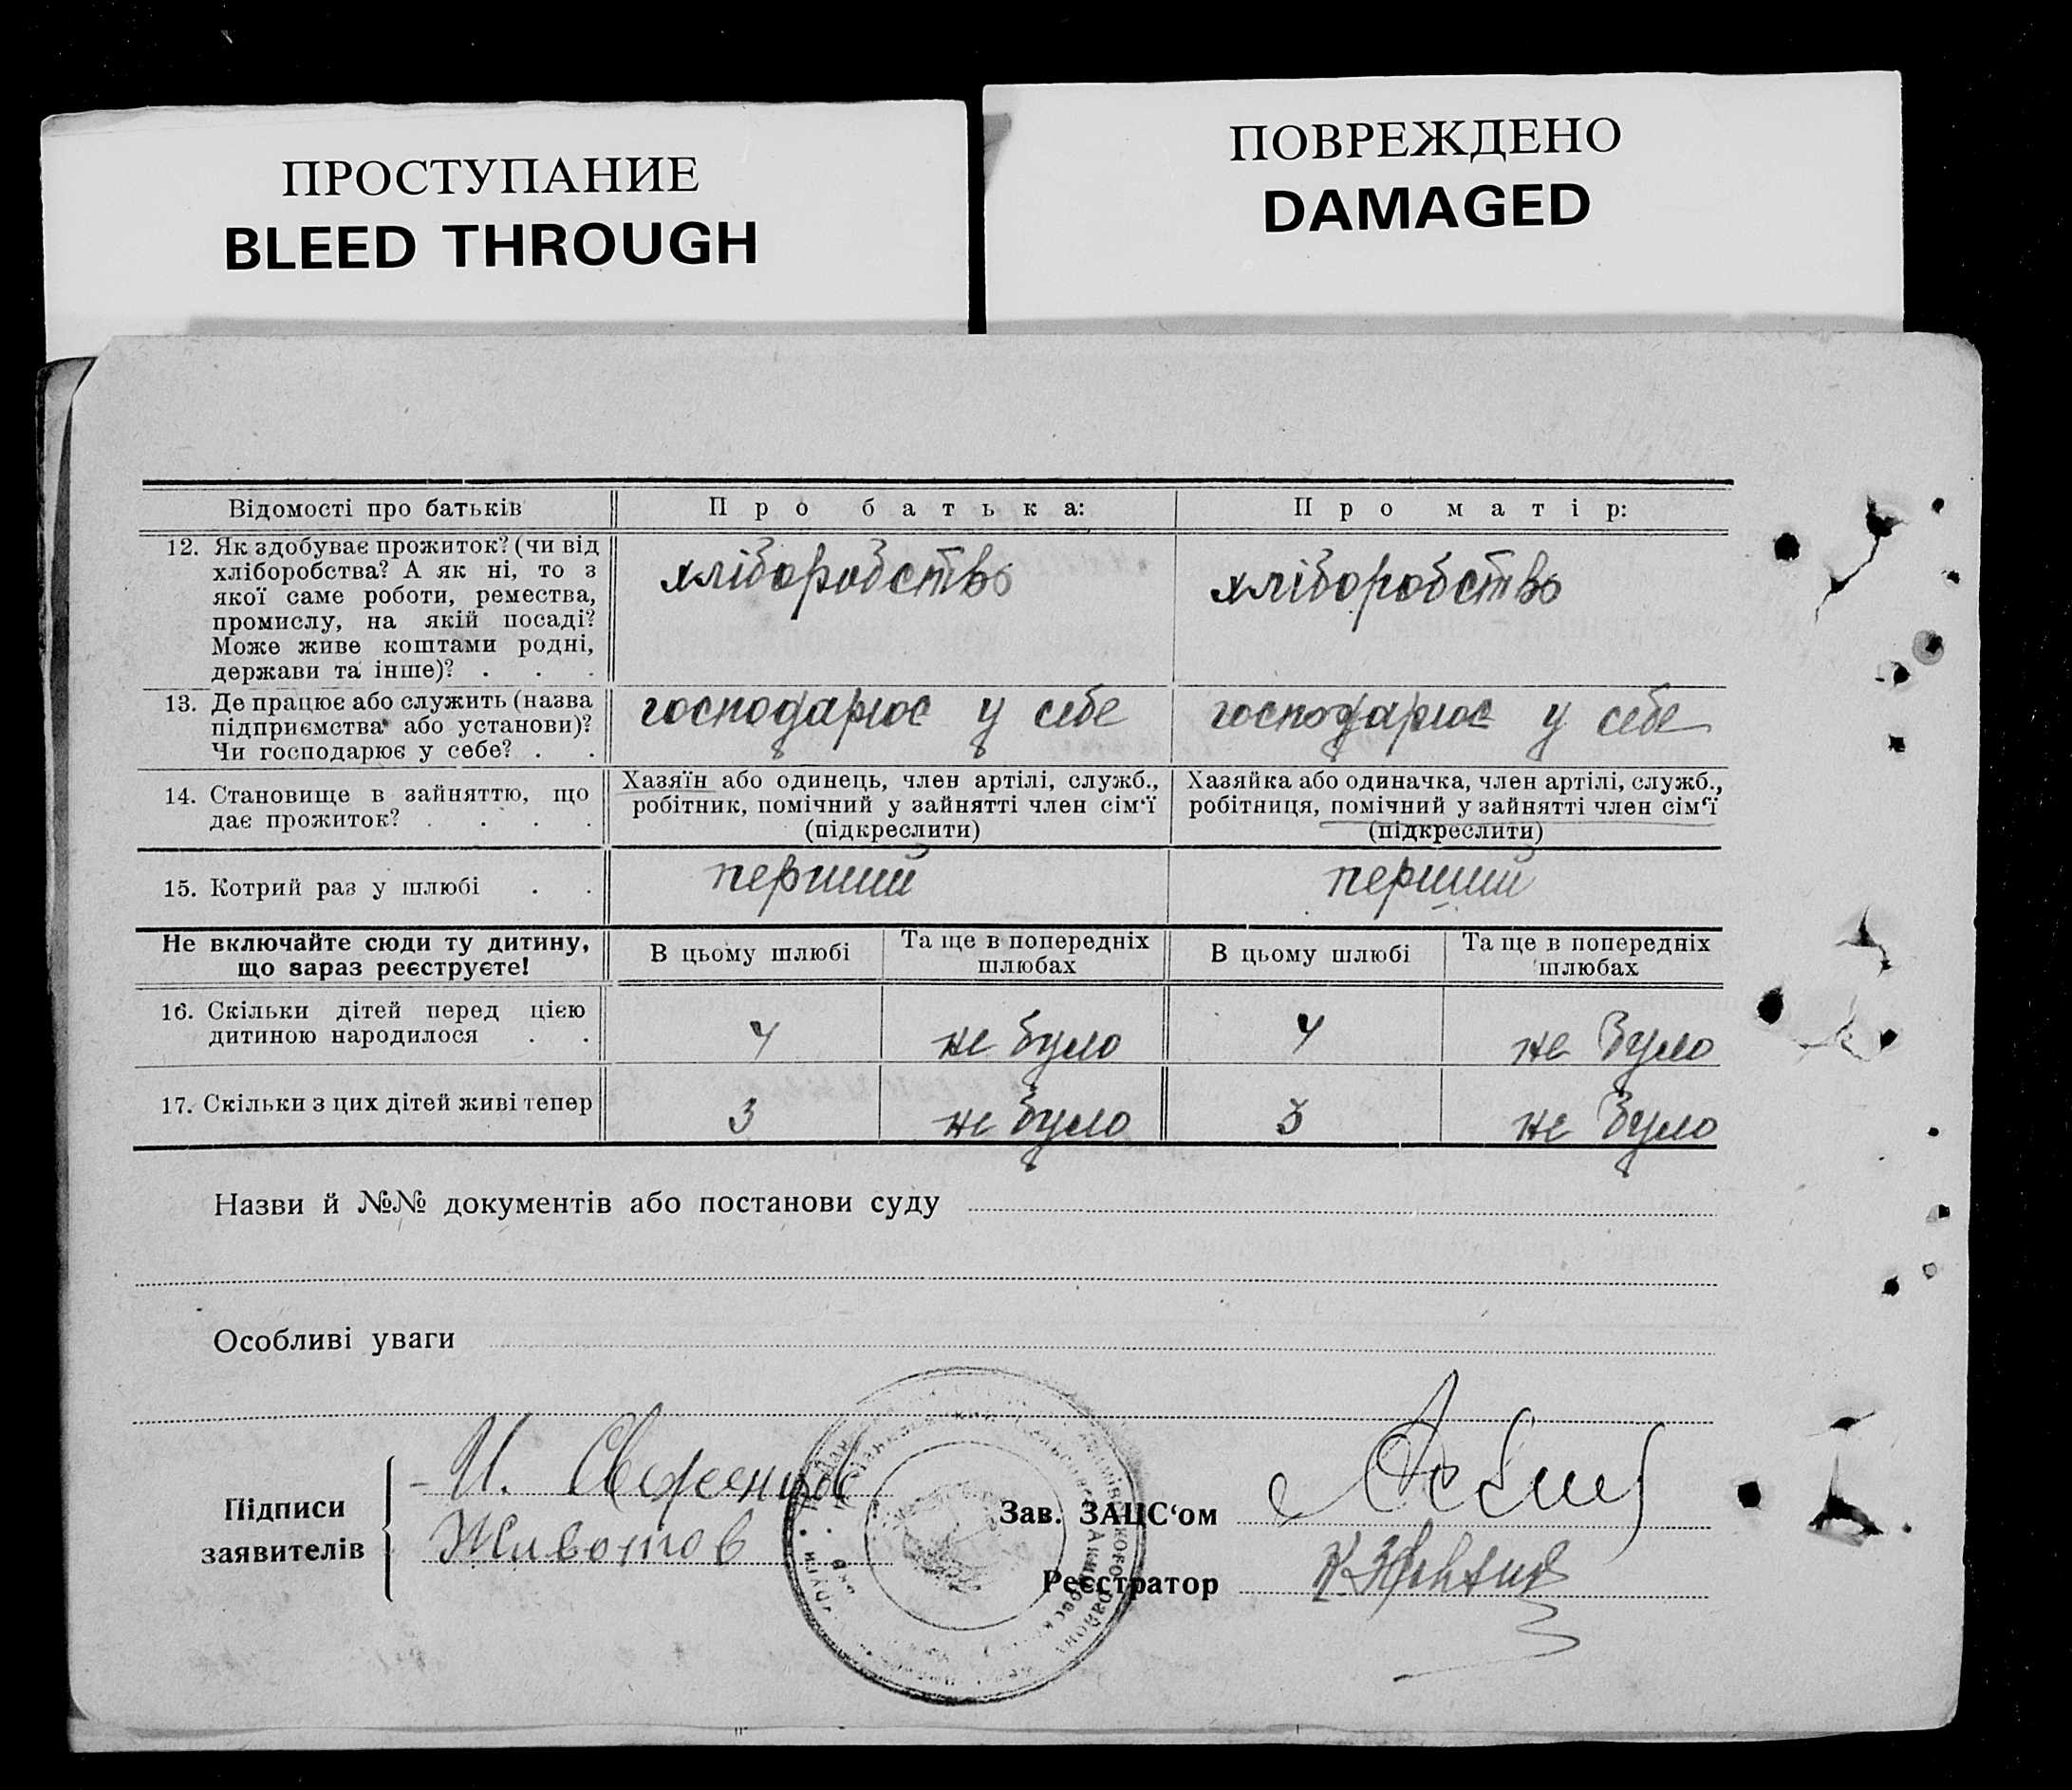 ПРОСТУПАНИЕ
BLEED THROUGH
ПОВРЕЖДЕНО
DAMAGED
Відомості про батьків
Про батька:
Про матір:
12. Як здобуває прожиток? (чи від
хліборобства? А як ні, то з
якої саме роботи, ремества,
промислу, на якій посаді?
Може живе коштами родні,
держави та інше)? . . .
хліборобство
хліборобство
13. Де працює або служить (назва
підприємства або установи)?
Чи господарює у себе? . .
господарює у себе
господарює у себе
14. Становище в зайняттю, що
дає прожиток? . . . .
Хазяїн або одинець, член артілі, служб.,
робітник, помічний у зайнятті член сім‘ї
(підкреслити)
Хазяйка або одиначка, член артілі, служб.,
робітниця, помічний у зайнятті член сім‘ї
(підкреслити)
15. Котрий раз у шлюбі . .
перший
перший
Не включайте сюди ту дитину,
що зараз реєструєте!
В цьому шлюбі
Та ще в попередніх
шлюбах
В цьому шлюбі
Та ще в попередніх
шлюбах
16. Скільки дітей перед цією
дитиною народилося . .
4
не було
4
не було
17. Скільки з цих дітей живі тепер
3
не було
3
не було
Назви й №№ документів або постанови суду
Особливі уваги
Підписи
заявителів
И.
Животов
Зав. ЗАЦС‘ом
Реєстратор